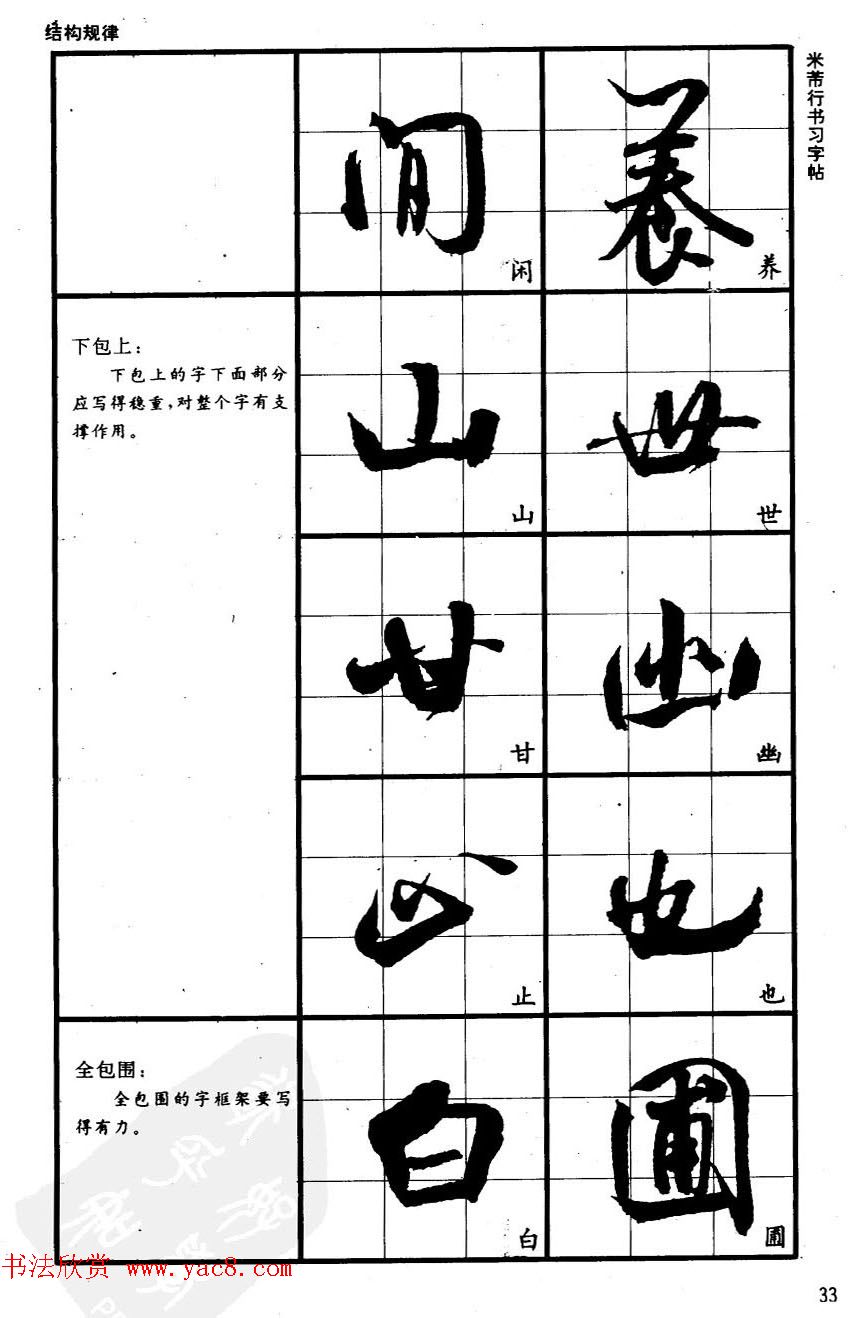 结构规律
米芾行书习字帖
閒
養
闲
养
下包上：
下包上的字下面部分
应写得稳重，对整个字有支
撑作用。
山
世
山
世
甘
幽
甘
幽
止
也
止
也
全包围：
全包围的字框架要写
得有力。
白
圃
白
圃
书法欣赏 www.yac8.com
33